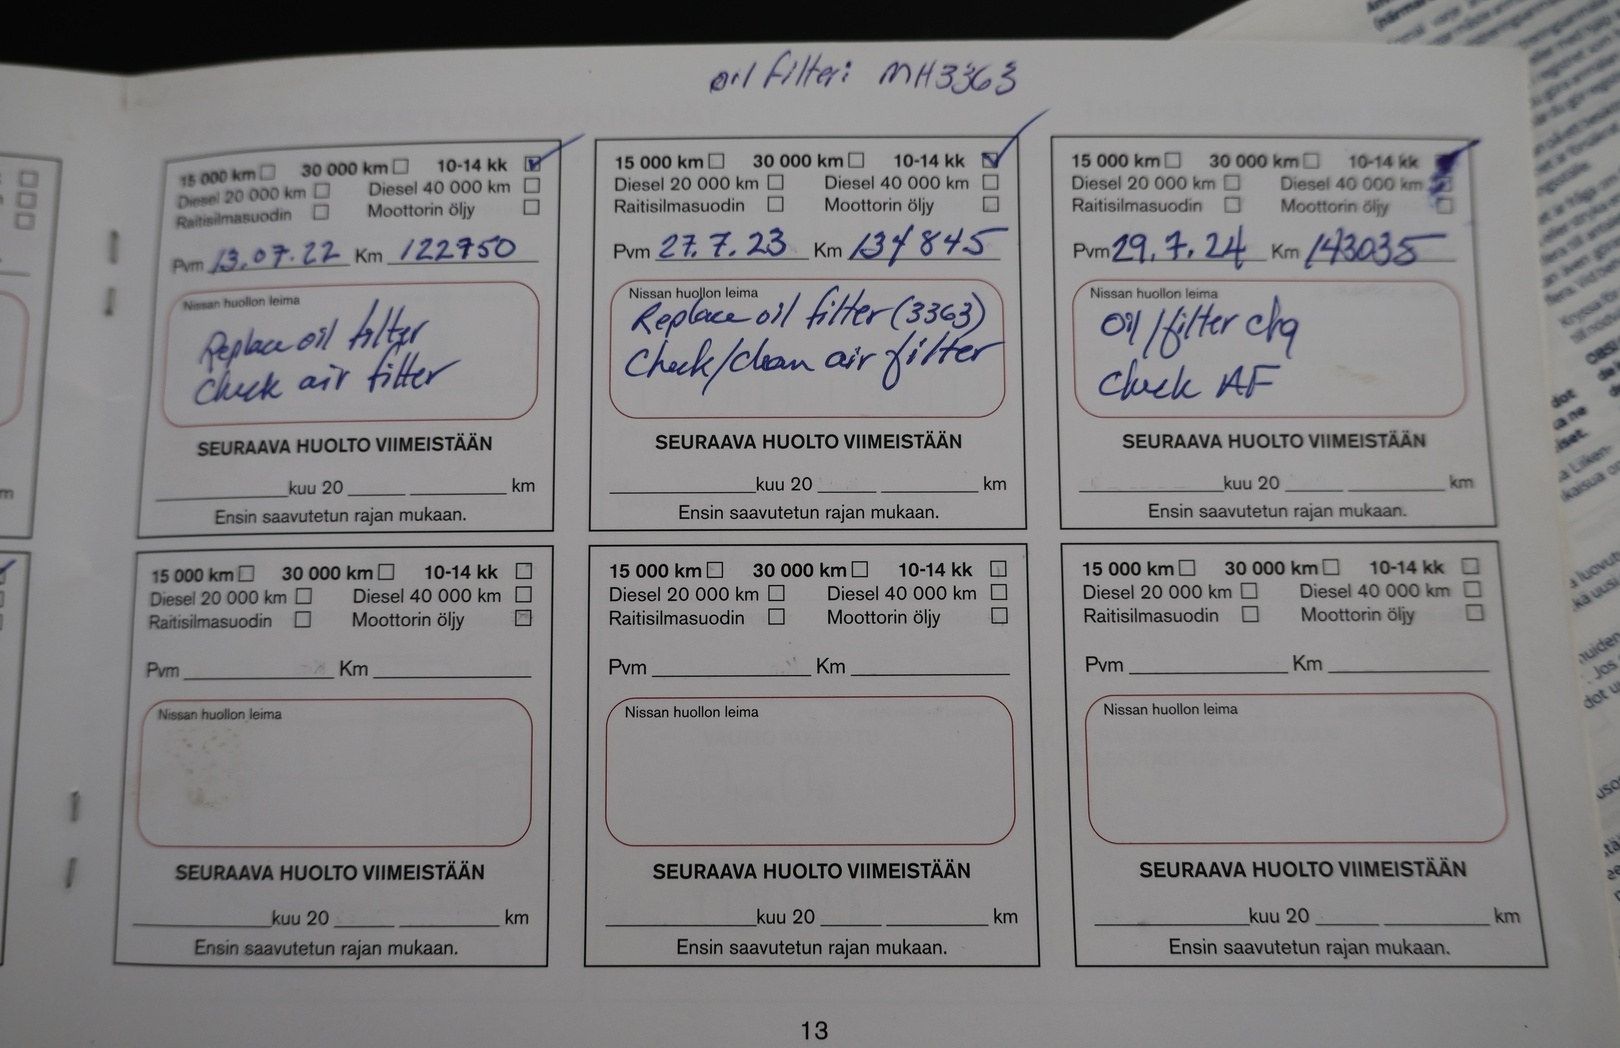 oil filter: MH3363
15 000 km 30 000 km 10-14 kk
Diesel 20 000 km Diesel 40 000 km
Raitisilmasuodin Moottorin öljy
Pvm 13.07.22 Km 122750
Nissan huollon leima
Replace oil filter
Check air filter
SEURAAVA HUOLTO VIIMEISTÄÄN
kuu 20 km
Ensin saavutetun rajan mukaan.
15 000 km 30 000 km 10-14 kk
Diesel 20 000 km Diesel 40 000 km
Raitisilmasuodin Moottorin öljy
Pvm 27.7.23 Km 134845
Nissan huollon leima
Replace oil filter (3363)
Check/clean air filter
SEURAAVA HUOLTO VIIMEISTÄÄN
kuu 20 km
Ensin saavutetun rajan mukaan.
15 000 km 30 000 km 10-14 kk
Diesel 20 000 km Diesel 40 000 km
Raitisilmasuodin Moottorin öljy
Pvm 29.7.24 Km 143035
Nissan huollon leima
Oil/filter chg
Check AF
SEURAAVA HUOLTO VIIMEISTÄÄN
kuu 20 km
Ensin saavutetun rajan mukaan.
15 000 km 30 000 km 10-14 kk
Diesel 20 000 km Diesel 40 000 km
Raitisilmasuodin Moottorin öljy
Pvm Km
Nissan huollon leima
SEURAAVA HUOLTO VIIMEISTÄÄN
kuu 20 km
Ensin saavutetun rajan mukaan.
15 000 km 30 000 km 10-14 kk
Diesel 20 000 km Diesel 40 000 km
Raitisilmasuodin Moottorin öljy
Pvm Km
Nissan huollon leima
SEURAAVA HUOLTO VIIMEISTÄÄN
kuu 20 km
Ensin saavutetun rajan mukaan.
15 000 km 30 000 km 10-14 kk
Diesel 20 000 km Diesel 40 000 km
Raitisilmasuodin Moottorin öljy
Pvm Km
Nissan huollon leima
SEURAAVA HUOLTO VIIMEISTÄÄN
kuu 20 km
Ensin saavutetun rajan mukaan.
13